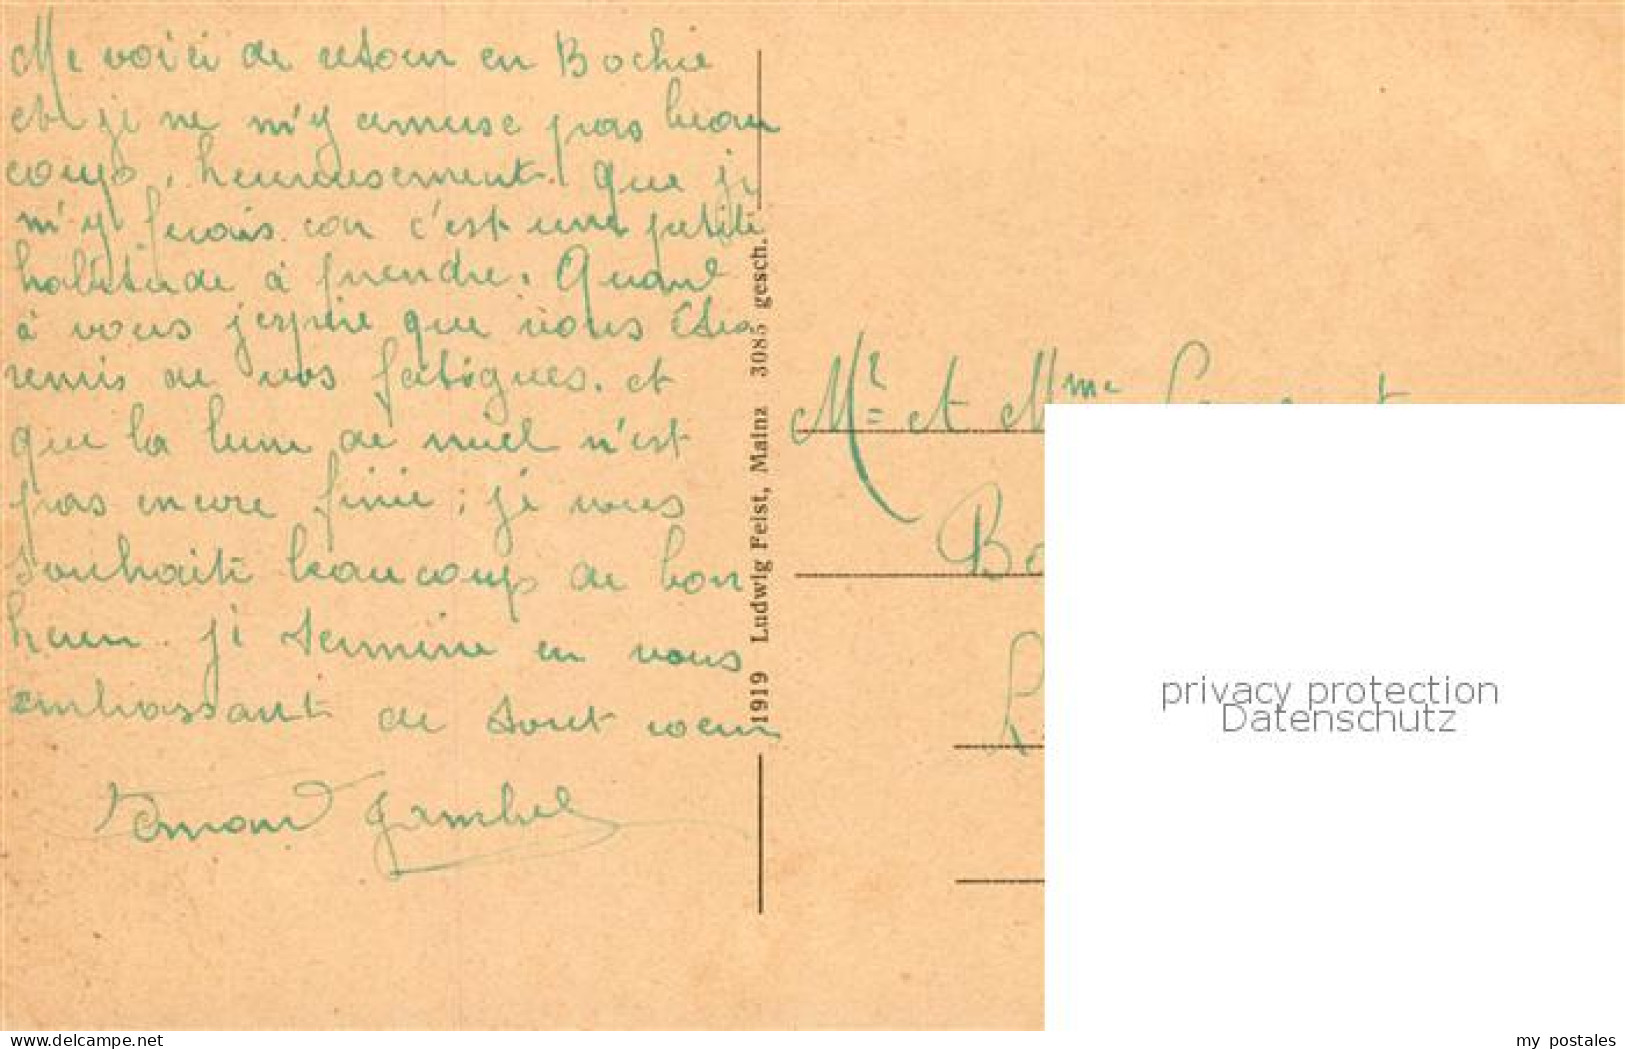 Me voici de retour en Bochie
et je ne m'y amuse pas beau
coup, heureusement que je
m'y ferais car c'est une petite
habitude à prendre. Quant
à vous j'espère que vous êtes
remis de vos fatigues. et
que la lune de miel n'est
pas encore finie ; je vous
souhaite beaucoup de bon
heur. je termine en vous
embrassant de tout coeur
1919 Ludwig Feist, Mainz 3085 gesch.
Mr et Mme
privacy protection
Datenschutz
www.delcampe.net
my_postales